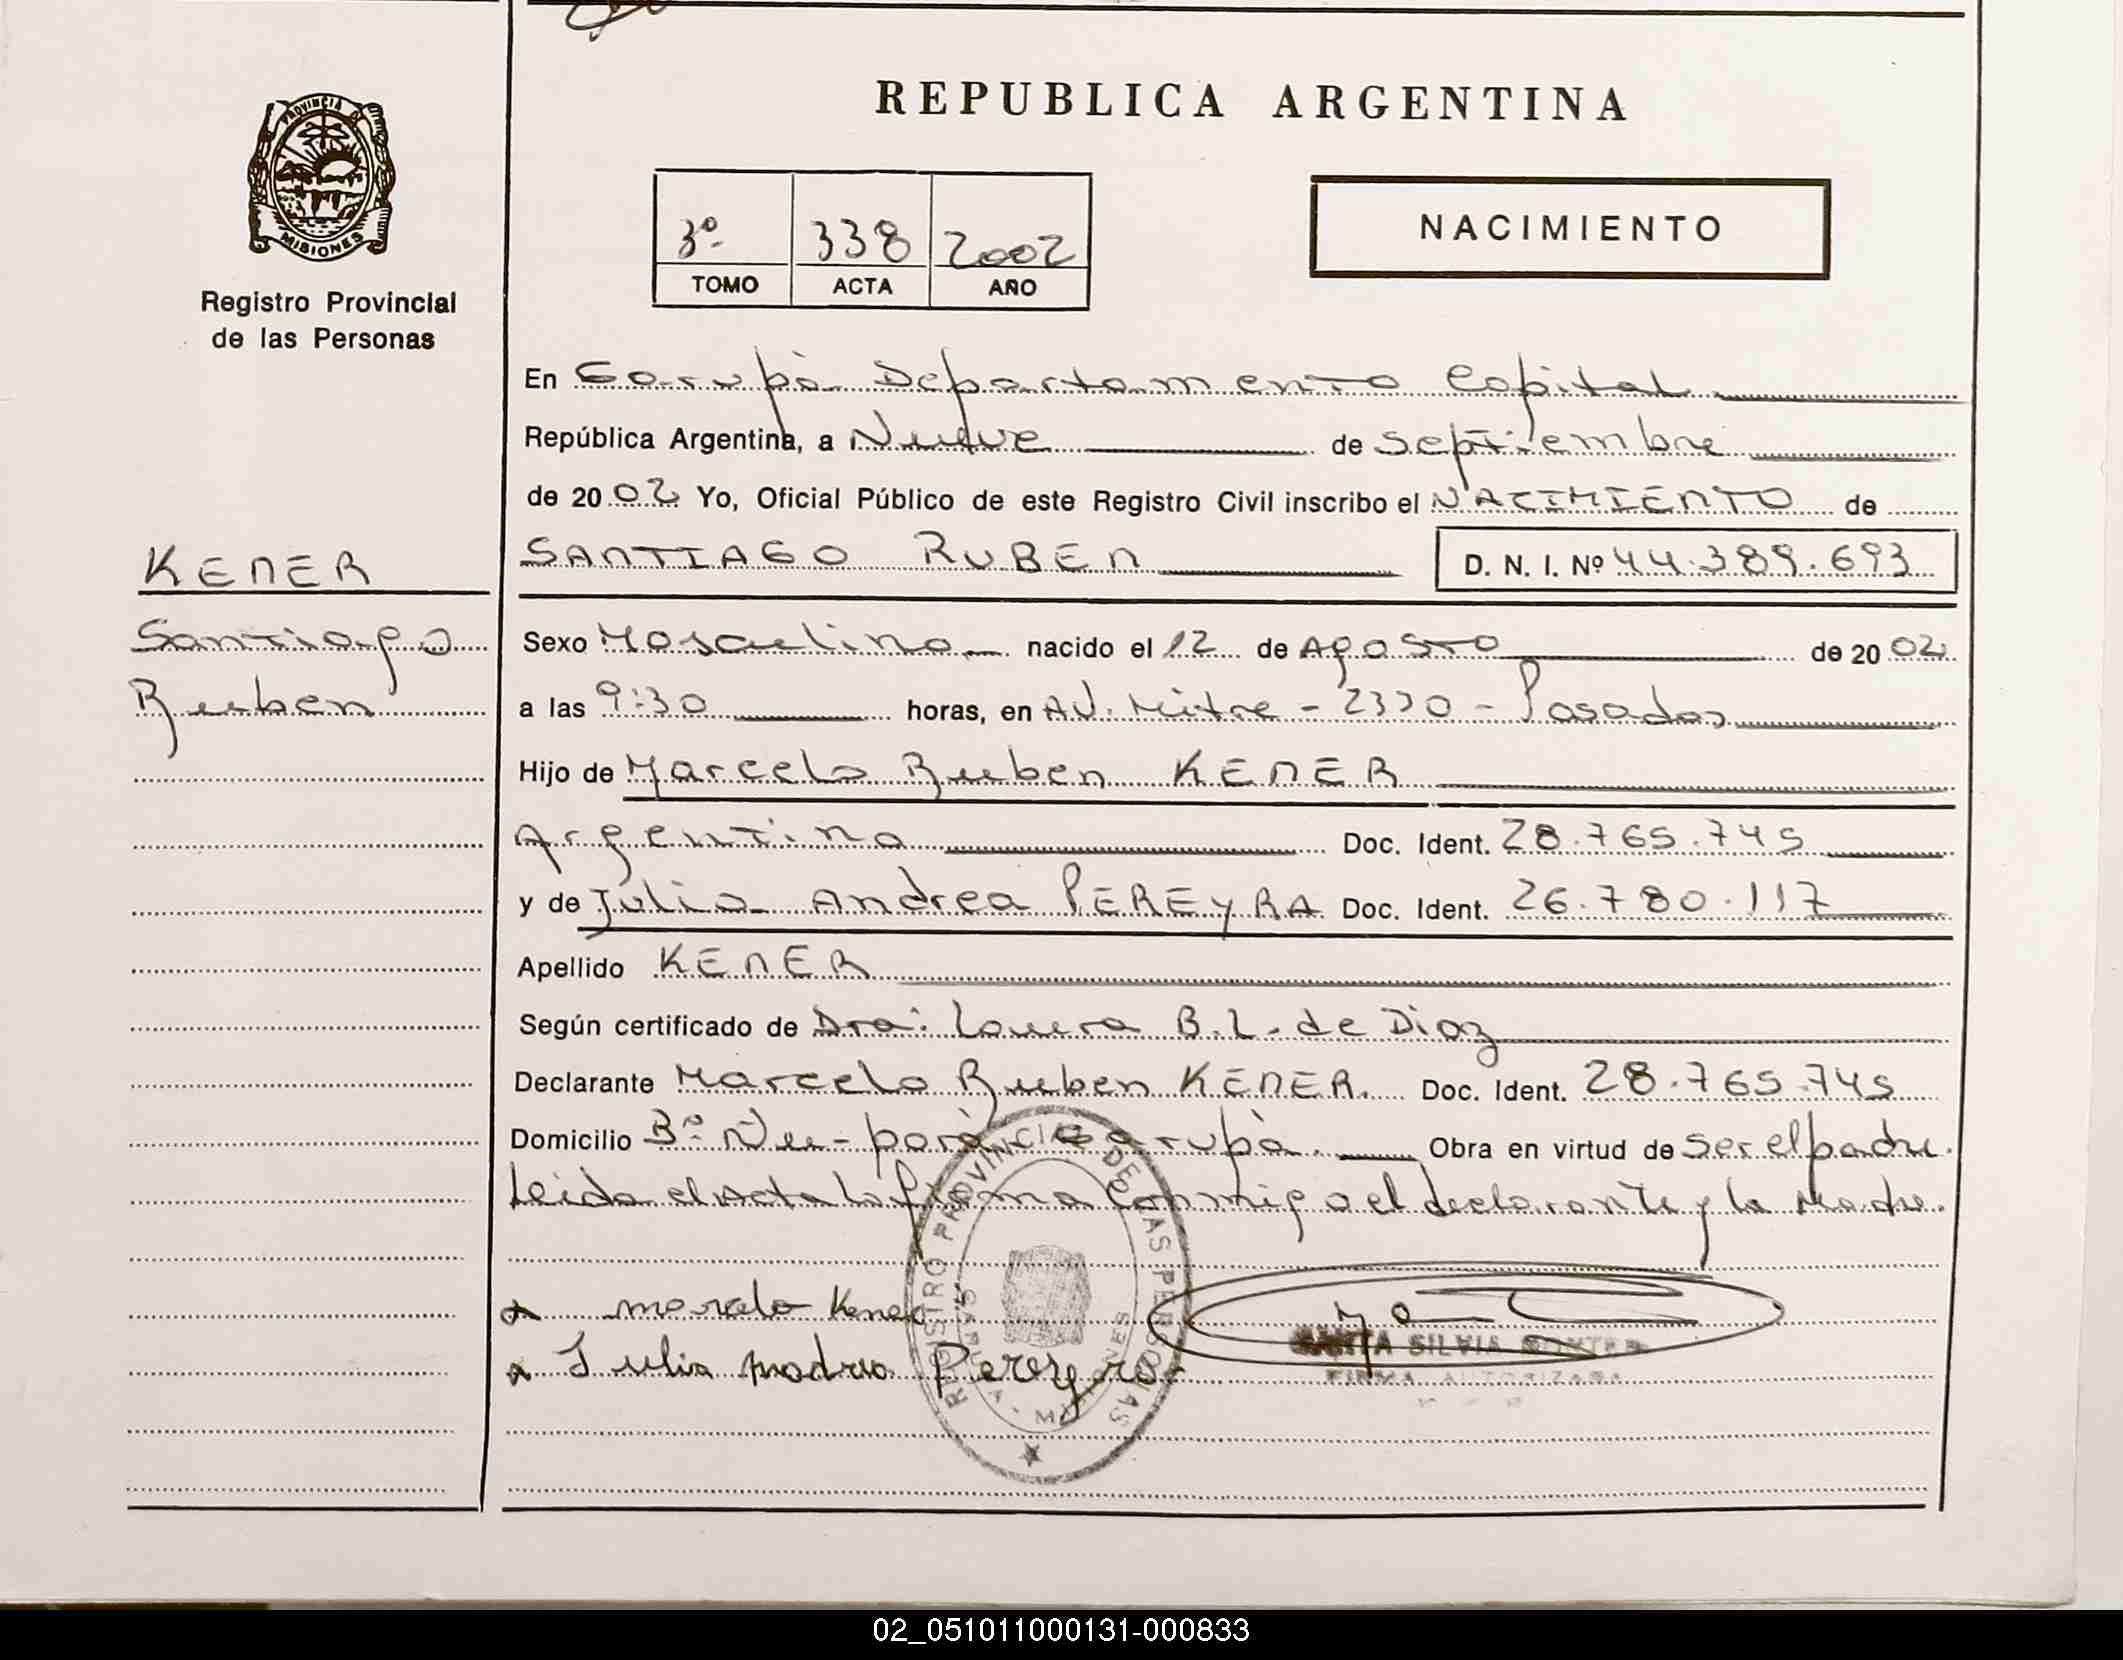 REPUBLICA ARGENTINA
PROVINCIA DE
MISIONES
Registro Provincial
de las Personas
3º 338 2002
TOMO ACTA AÑO
NACIMIENTO
En Garupà Departamento Capital
República Argentina, a Nueve de Septiembre
de 2002 Yo, Oficial Público de este Registro Civil inscribo el NACIMIENTO de
KENER
Santiago
Ruben
SANTIAGO RUBEN D. N. I. Nº 44.389.693
Sexo Masculino nacido el 12 de Agosto de 2002
a las 9:30 horas, en AV. Mitre - 2330 - Posadas
Hijo de Marcelo Ruben KENER
Argentino Doc. Ident. 28.765.745
y de Julia Andrea PEREYRA Doc. Ident. 26.780.117
Apellido KENER
Según certificado de Dra: Laura B.L. de Diaz
Declarante Marcelo Ruben KENER. Doc. Ident. 28.765.745
Domicilio Bº Ñu-porà Garupà. Obra en virtud de ser el padre.
Leida el Acta la firma conmigo el declarante y la Madre.
marcelo Kener
Julia Pereyra
REGISTRO PROVINCIAL DE LAS PERSONAS
MISIONES
SILVIA
FIRMA AUTORIZADA
02_051011000131-000833